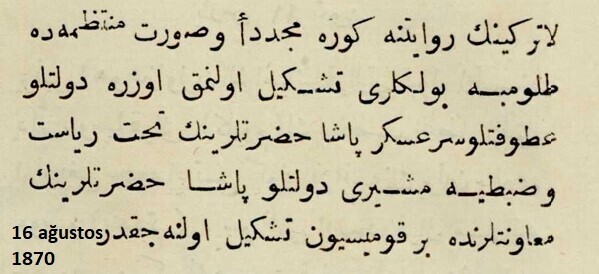 لاتركينك روايتنه كوره مجدداً وصورت منتظمه‌ده
طلومبه بولكلرى تشكيل اولنمق اوزره دولتلو
عطوفتلو سرعسكر پاشا حضرتلرينك تحت رياست
و ضبطيه مشيرى دولتلو پاشا حضرتلرينك
معاونتلرنده بر قوميسيون تشكيل اولنه‌جقدر
16 ağustos
1870